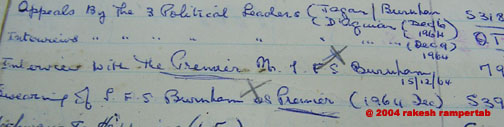 Appeals By The 3 Political Leaders (Jagan/Burnham
D'Aguiar (Dec/6) 5318
1964
Interviews " " " " " " (Dec 9) QT
1964
Interview with the Premier Mr. L F S Burnham 79
15/12/64
Swearing Of L.F.S Burnham as Premier (1964 Dec) 539
© 2004 rakesh rampertab